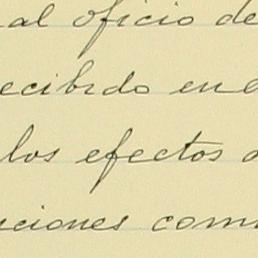 al oficio de
ecibido en e
los efectos d
ciones com